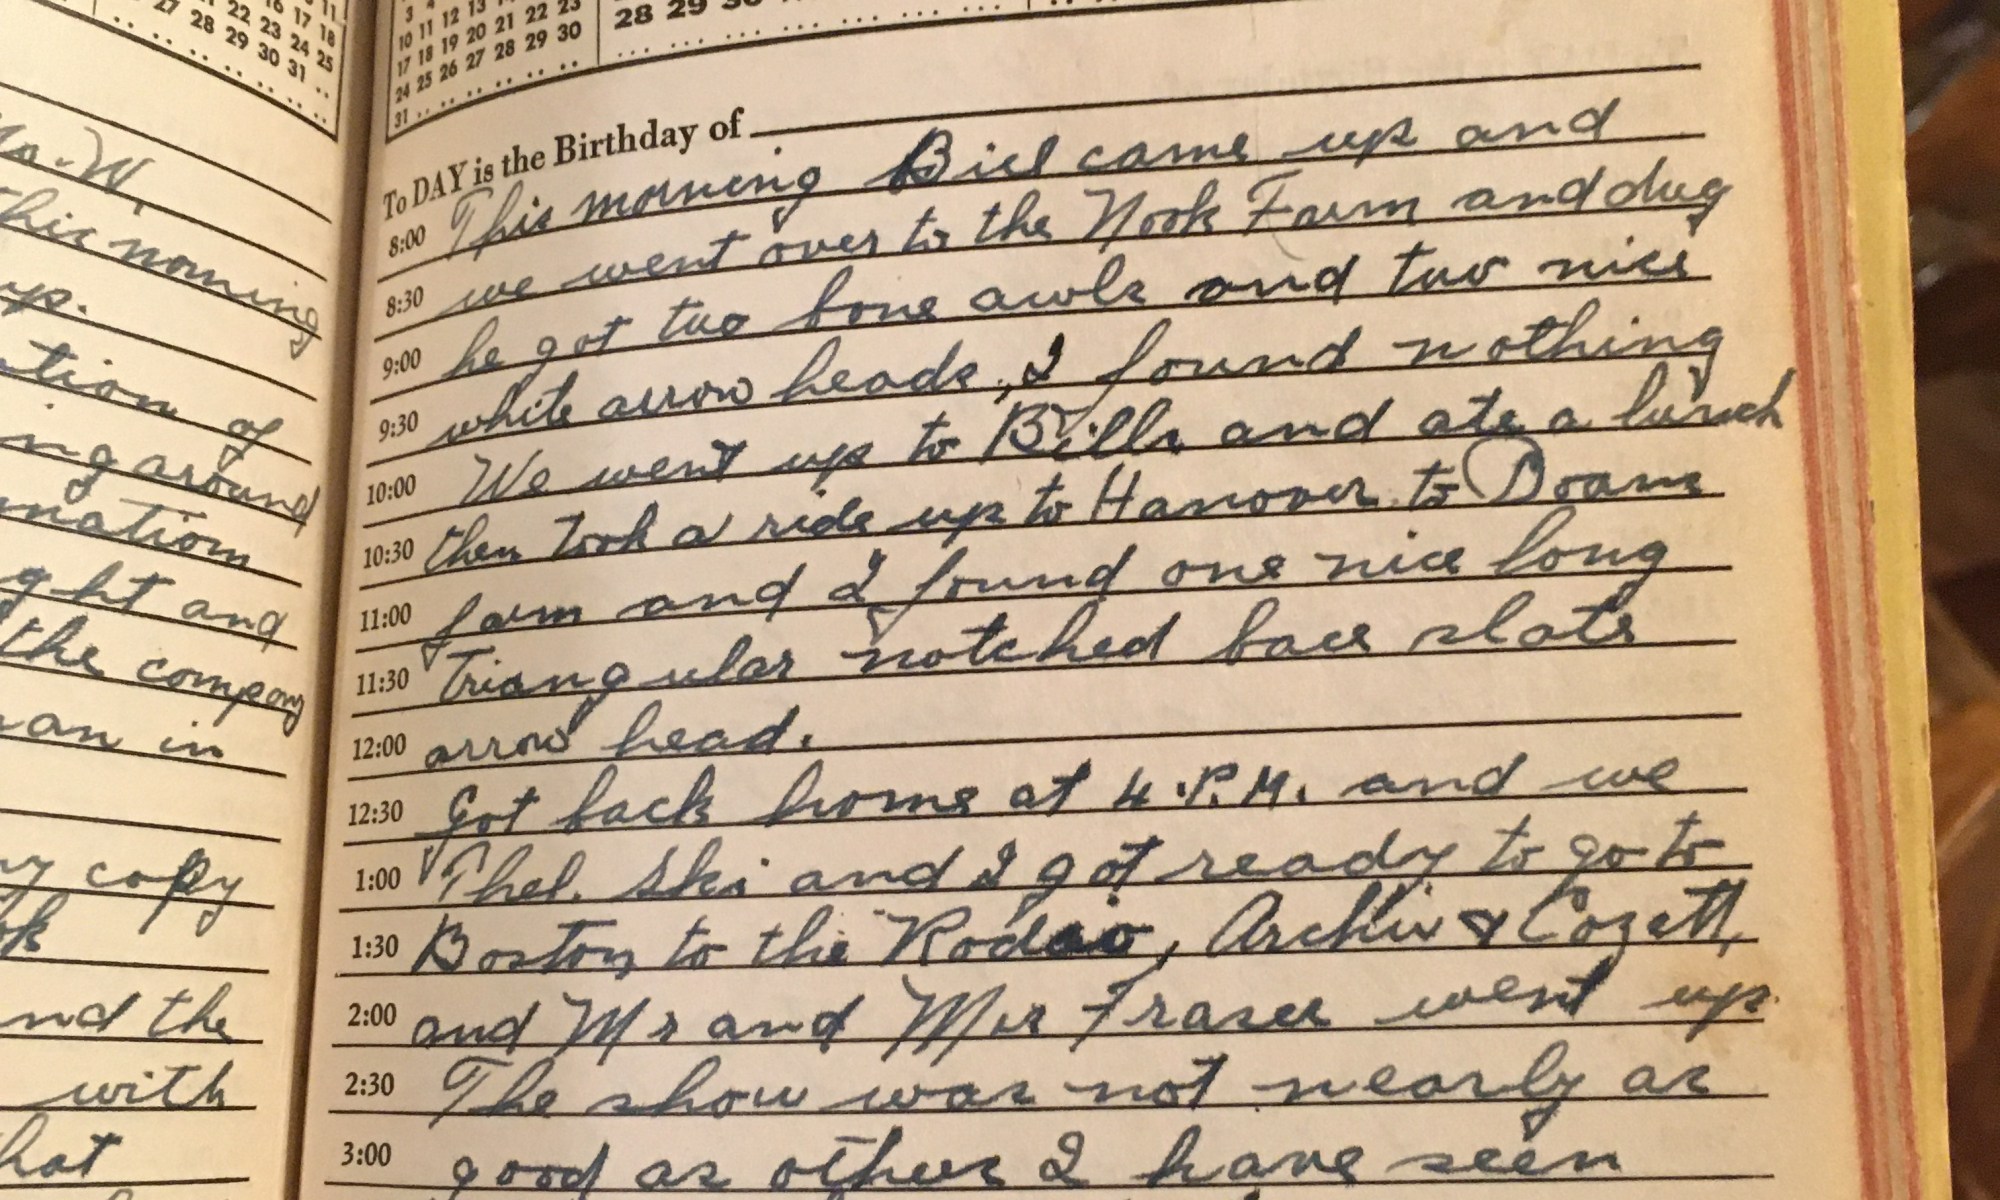 11
16 17 18
22 23 24 25
27 28 29 30 31
3 4
10 11 12 13 14
17 18 19 20 21 22 23
24 25 26 27 28 29 30
31
28 29 30
To DAY is the Birthday of
8:00 This morning Bill came up and
8:30 we went over to the Nook Farm and dug
9:00 he got two bone awls and two nice
9:30 white arrow heads, I found nothing
10:00 We went up to Bills and ate a lunch
10:30 then took a ride up to Hanover to Doane
11:00 farm and I found one nice long
11:30 Triangular notched base slate
12:00 arrow head.
12:30 Got back home at 4.P.M. and we
1:00 Thel. Ski and I got ready to go to
1:30 Boston to the Rodeo, Archie & Cozett,
2:00 and Mr and Mrs Fraser went up
2:30 The show was not nearly as
3:00 good as others I have seen
W.
this morning
up.
of
around
ght and
the company
an in
copy
nd the
with
hat